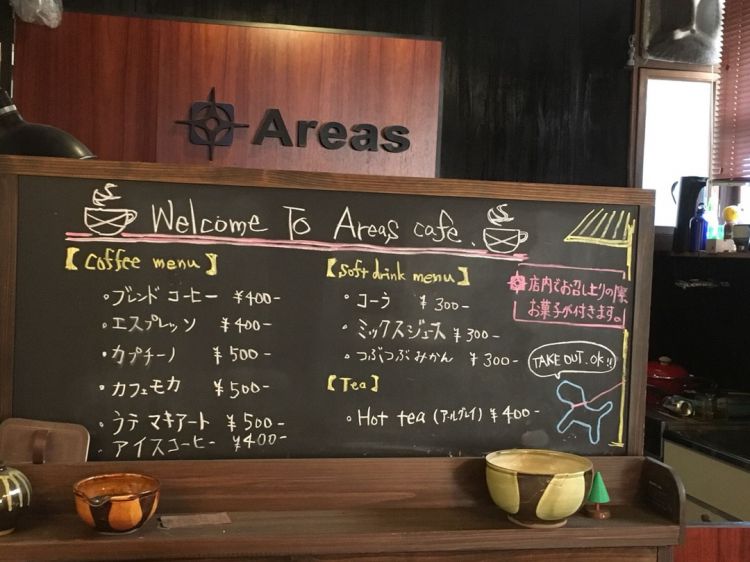 Areas
Welcome To Areas cafe.
【Coffee menu】
・ブレンド コーヒー ¥400-
・エスプレッソ ¥400-
・カプチーノ ¥500-
・カフェモカ ¥500-
・ラテ マキアート ¥500-
アイスコーヒー ¥400-
【Soft drink menu】
・コーラ ¥300-
・ミックスジュース ¥300-
・つぶつぶみかん ¥300-
【Tea】
・Hot tea (アールグレイ) ¥400-
店内でお召し上りの際
お菓子が付きます。
TAKE OUT. OK!!